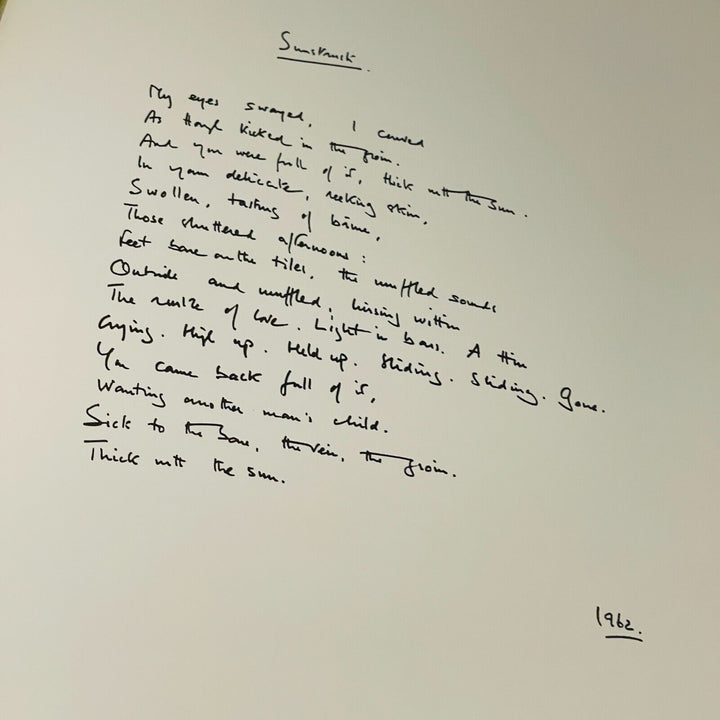 Sunstruck.
My eyes swayed, I curved
As though kicked in the groin.
And you were full of it, thick with the sun.
In your delicate, reeking skin,
Swollen, tasting of brine,
Those shuttered afternoons:
Feet bare on the tiles, the muffled sounds
Outside and muffled, hissing within
The smile of love. Light in bars. A thin
Crying. High up. Held up. Sliding. Sliding. Gone.
You came back full of it,
Wanting another man's child.
Sick to the bone, the vein, the groin.
Thick with the sun.
1962.